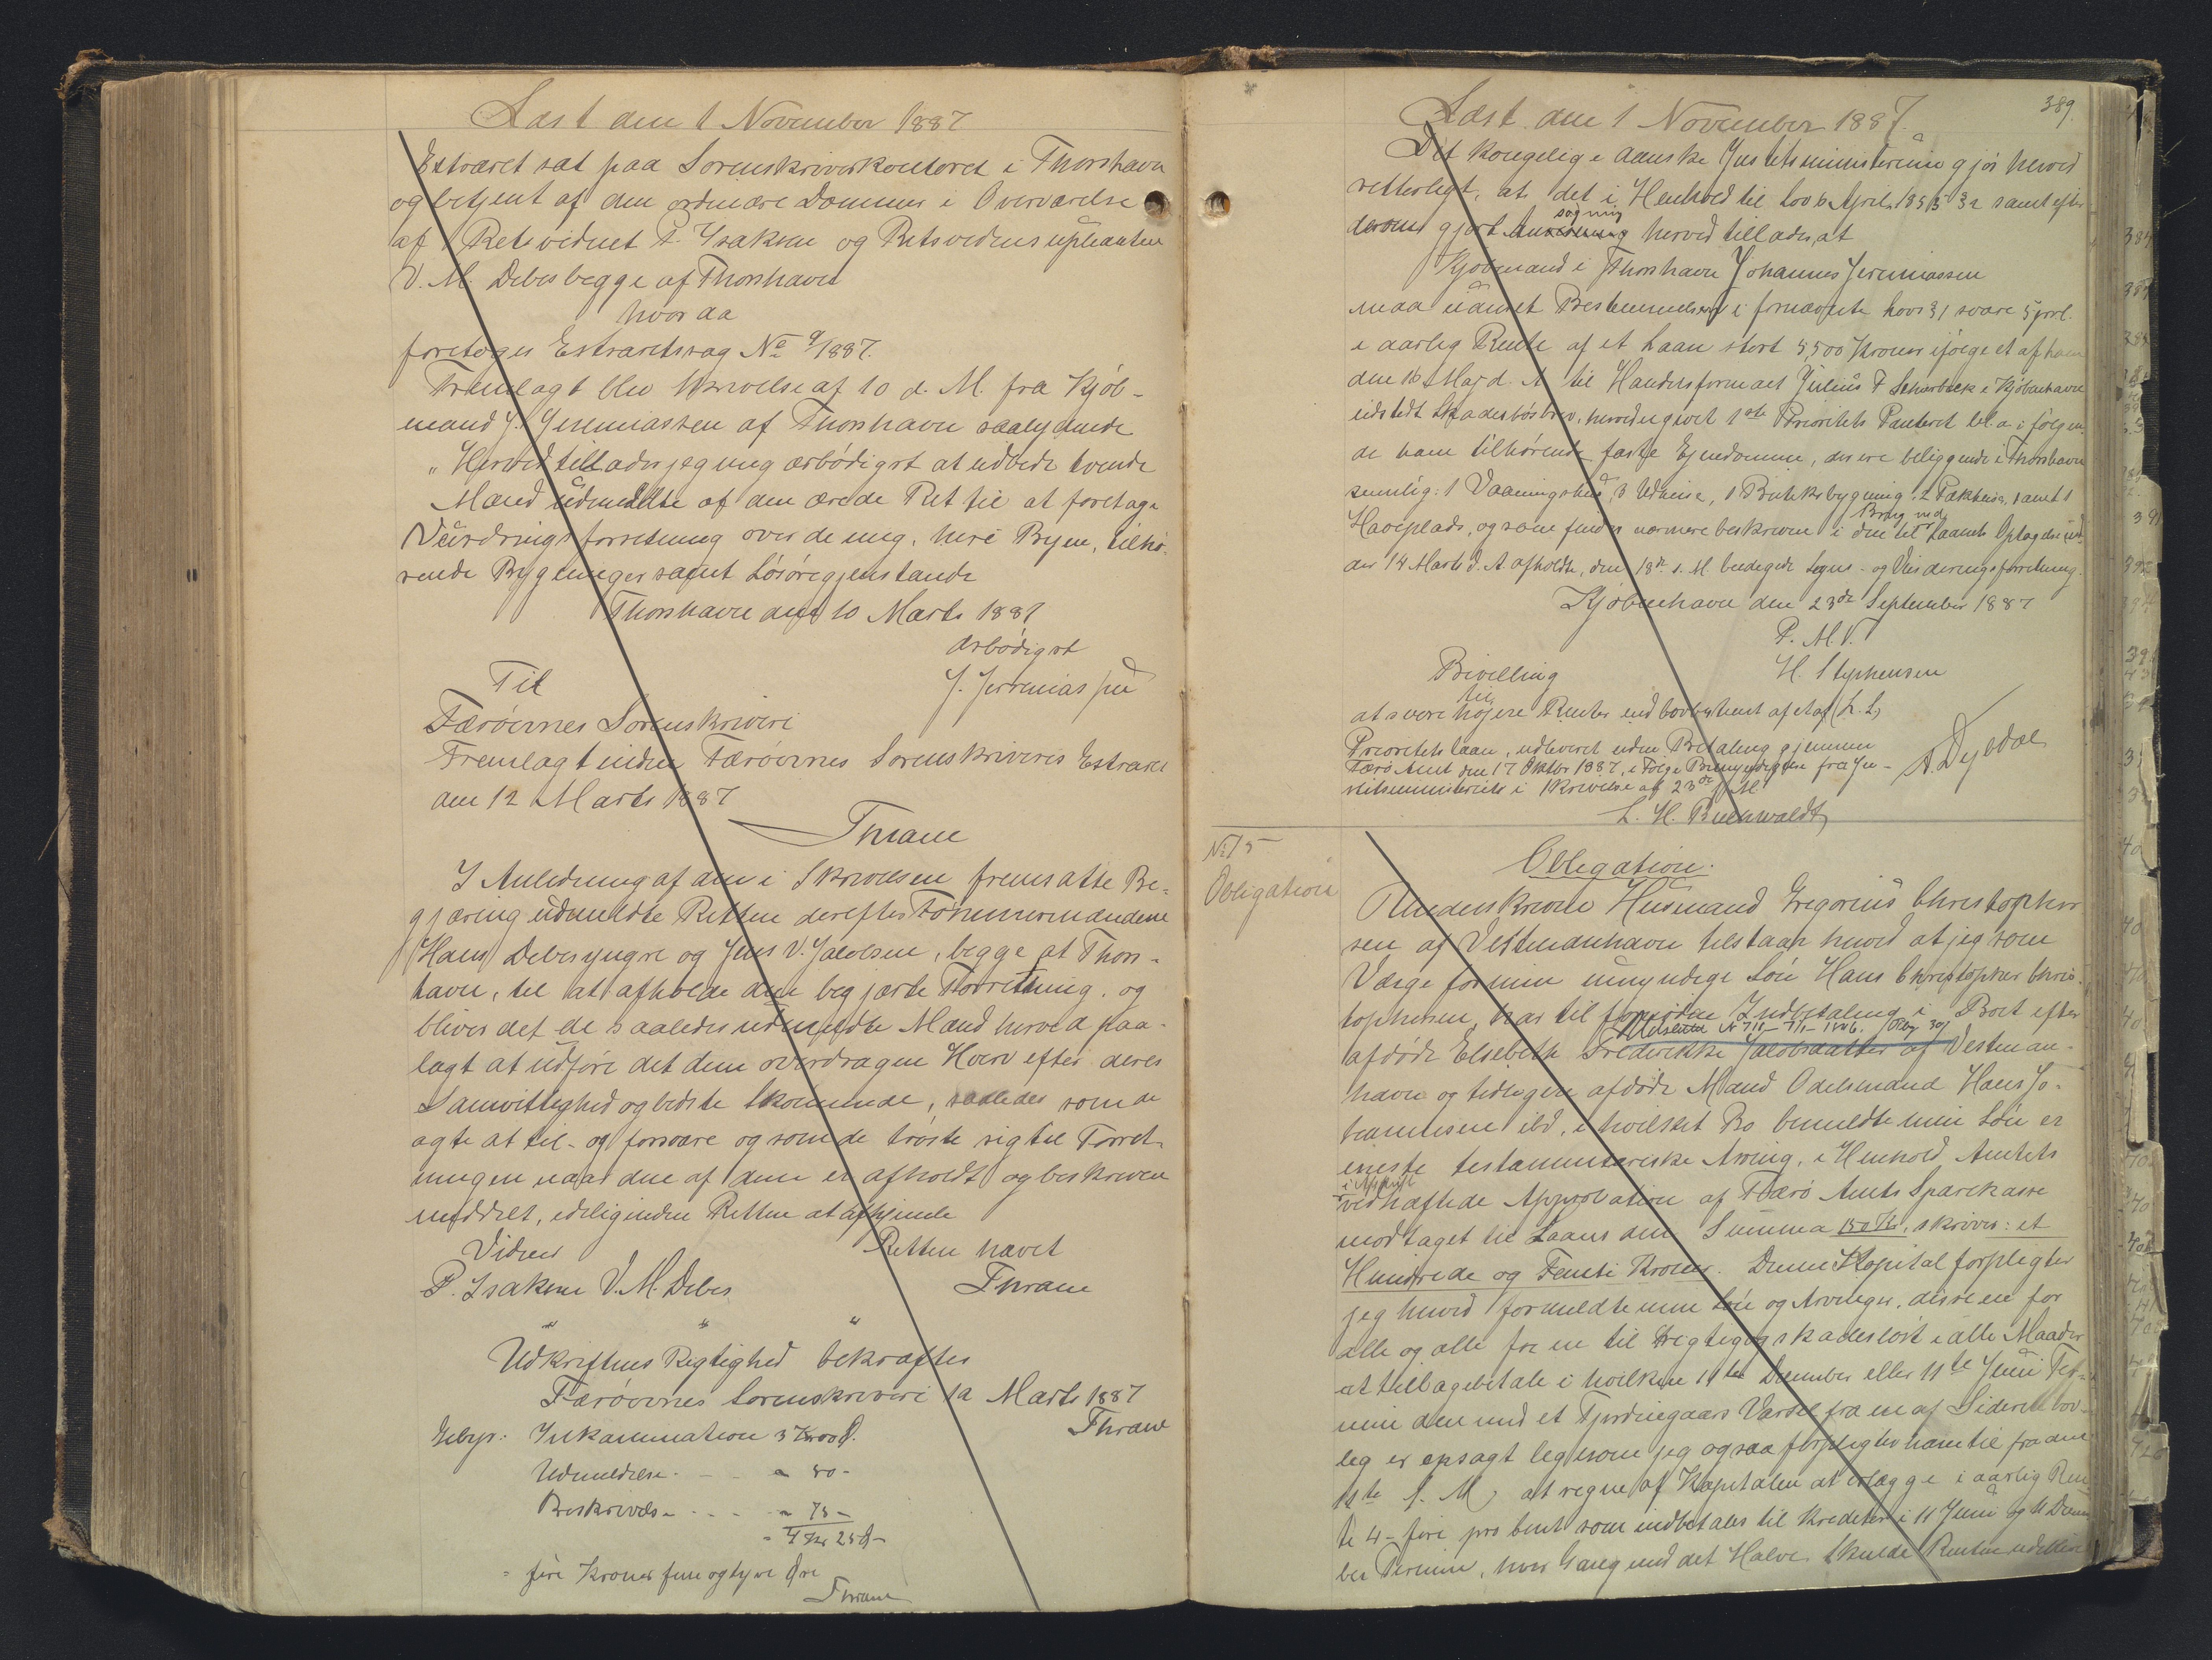 Læst den 1 November 1887
Extraret sat paa Sorenskriverkontoret i Thorshavn
og betjent af den ordinære Dommer i Overværelse
af 1 Retsvidnet P. Isaksen og Retsvidnesupleanten
V. M. Debes begge af Thorshavn
hvor da
foretoges Extraretssag No 9/1887.
Fremlagt blev Skrivelse af 10 d. M. fra Kjöb-
mand J. Jeremiassen af Thorshavn saalydende
"Herved tillader jeg mig ærbödigst at udbede tvende
Mænd udmeldte af den ærede Ret til at foretage
Vurderingsforretning over de mig, her i Byen, tilhö-
rende Bygninger samt Lösöregjenstande
Thorshavn den 10 Marts 1887
Ærbödigst
Til
J. Jeremiassen
Færöernes Sorenskriveri
Fremlagt inden Færöernes Sorenskriveris Extraret
den 12 Marts 1887
Thrane
I Anledning af den i Skrivelsen fremsatte Be-
gjæring udmeldte Retten derefter Tömmermændene
Hans Debes yngre og Jens V. Jacobsen, begge af Thors-
havn, til at afholde den begjærte Forretning, og
blives det de saaledes udmeldte Mænd herved paa-
lagt at udföre det dem overdragne Hverv efter deres
Samvittighed og bedste Skjönnende, saaledes som de
agte at til- og forsvare og som de tröste sig til Forret-
ningen naar den af dem er afholdt og beskreven
meddelt, edelig inden Retten at afhjemle
Vidner
Retten hævet
P. Isaksen V. M. Debes
Thrane
" " "
Udskriftens Rigtighed bekræftes
Færöernes Sorenskriveri 12 Marts 1887
Thrane
Gebyr: Inkammination 3 Kr 00 Ø.
Udmeldelse - - - " 50 -
Beskrivelse - - - " 75 -
= 4 Kr 25 Ø -
= fire Kroner fem og tyve Øre
Thrane
389.
Læst den 1 November 1887.
Det kongelige danske Justitsministerium gjör herved
vitterligt, at det i Henhold til Lov 6 April 1855 § 2 samt efter
derom gjort Ansögning herved tillades, at
Kjöbmand i Thorshavn Johannes Jeremiassen
maa uanset Bestemmelsen i fornævnte Lovs § 1 svare 5 prC.
i aarlig Rente af et Laan stort 5,500 Kroner ifölge et af ham
den 16 Maj d. A. til Handelsfirmaet Julius F Scharbeck i Kjöbenhavn
udstedt Skadeslösbrev, hvorved givet 1ste Prioritets Panteret bl. a. i fölgen-
de ham tilhørende faste Ejendomme, der ere beliggende i Thorshavn
nemlig: 1 Vaaningshus, 3 Udhuse, 1 Butiksbygning, 2 Pakhuse, samt 1
Brug ved
Haveplads, og som findes nærmere beskrevne i den til Laanets Optagelse un-
der 14 Marts d. A. afholdte, den 18de s. M. beedigede Syns- og Vurderingsforretning.
Kjöbenhavn den 23de September 1887
P. M. V.
Bevilling
H. Stephensen
til
at svare höjere Renter end lovbestemt af et af (L. S.)
Prioritetslaan, udleveret uden Betaling gjennem
Færö Amt den 17 Oktbr 1887, i Fölge Bemyndigelse fra Ju-
stitsministeriet i Skrivelse af 23de f. M.
A. Dybdal
L. H. Buchwaldt
No 15
Obligation
Obligation.
Underskrevne Husmand Gregorius Christopher-
sen af Vestmanhavn tilstaar herved at jeg som
Værge for min umyndige Sön Hans Christopher Chris-
tophersen, har til foreviden Indbetaling i Boet efter
afdöde Elsebeth Frederikke Jacobsdatter af Vestman-
havn og tidligere afdöde Mand Odelsmand Hans Jo-
hannesen ibd, i hvilket Bo bemeldte min Sön er
eneste testamentariske Arving, i Henhold Amtets
i Afskrift
vedhæftede Approbation af Færö Amts Sparekasse
modtaget til Laans den Summa 150 Kr, skriver: et
Hundrede og Femti Kroner. Denne Kapital forpligter
jeg herved formeldte min Sön og Arvinger, disse en for
alle og alle for en til rigtig og skadeslöst i alle Maader
at tilbagebetale i hvilken 11te December eller 11te Juni Ter-
min den med et Fjerdingaars Varsel fra en af Siderne lov-
lig er opsagt ligesom jeg ogsaa forpligter ham til fra den
11te f. M. at regne af Kapitalen at erlægge i aarlig Ren-
te 4 - fire pro Cent som indbetales til Kreditor i 11 Juni og 11 Decem
ber Termin, hver Gang med det Halve. Skulde Renten udeblive